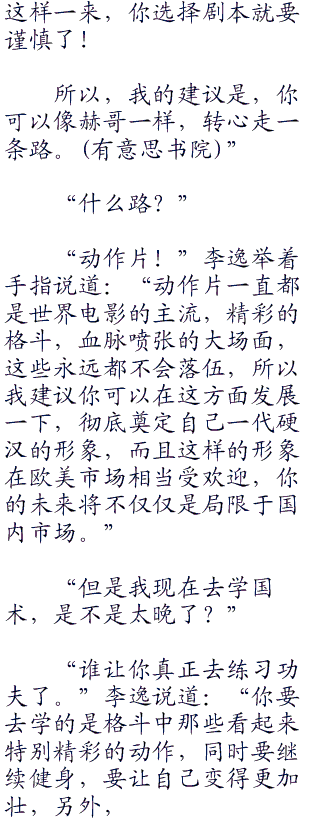 这样一来，你选择剧本就要
谨慎了！
所以，我的建议是，你
可以像赫哥一样，转心走一
条路。(有意思书院)”
“什么路？”
“动作片！”李逸举着
手指说道：“动作片一直都
是世界电影的主流，精彩的
格斗，血脉喷张的大场面，
这些永远都不会落伍，所以
我建议你可以在这方面发展
一下，彻底奠定自己一代硬
汉的形象，而且这样的形象
在欧美市场相当受欢迎，你
的未来将不仅仅是局限于国
内市场。”
“但是我现在去学国
术，是不是太晚了？”
“谁让你真正去练习功
夫了。”李逸说道：“你要
去学的是格斗中那些看起来
特别精彩的动作，同时要继
续健身，要让自己变得更加
壮，另外，